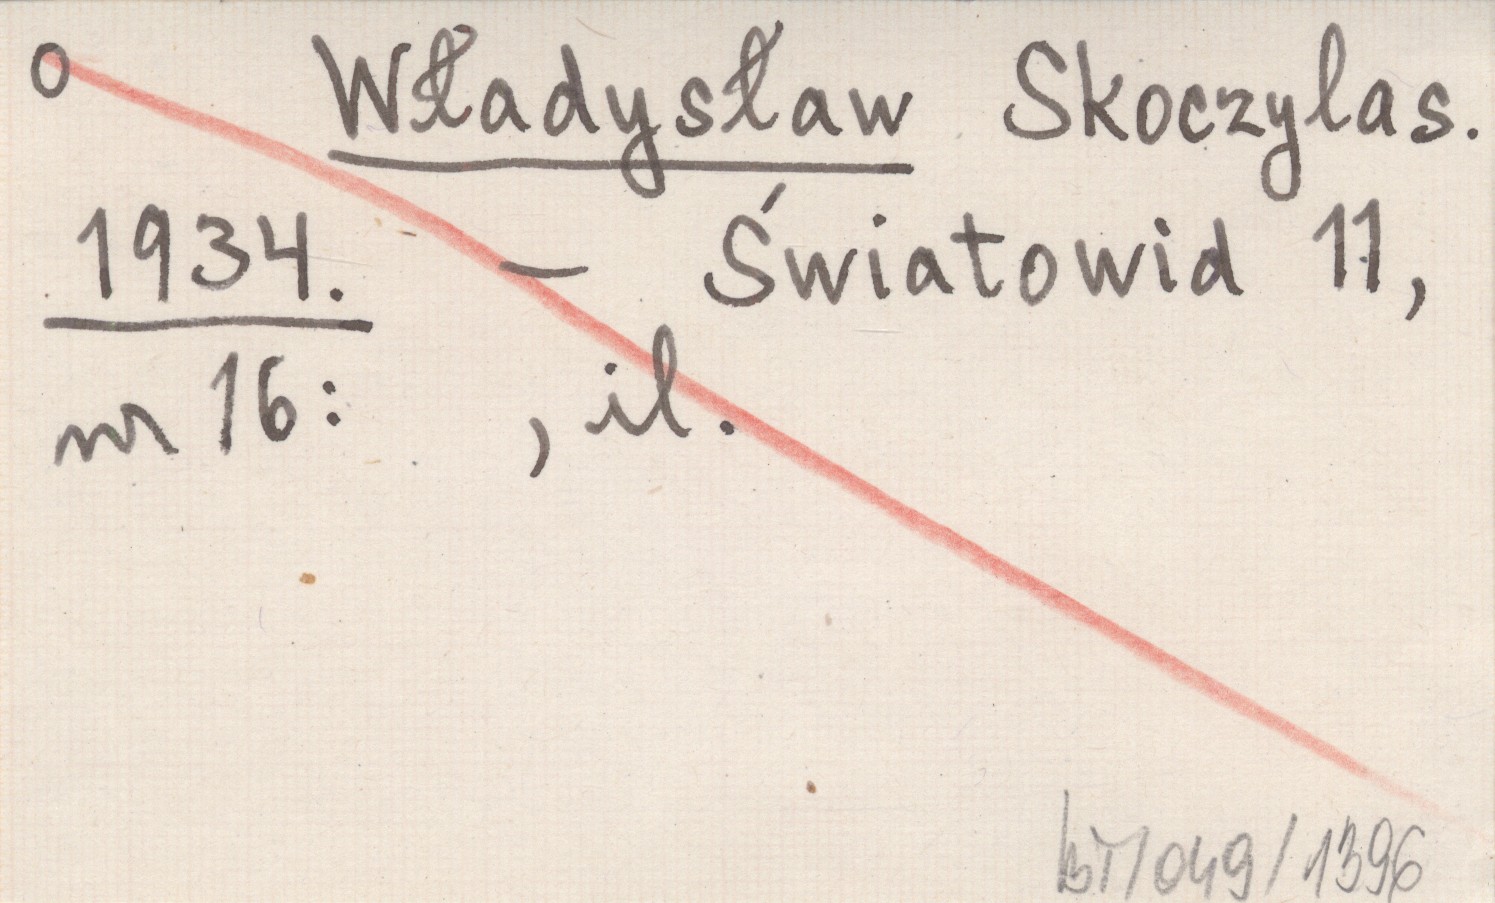 O Władysław Skoczylas.
1934. – Światowid 11,
nr 16: , il.
bT/049/1396